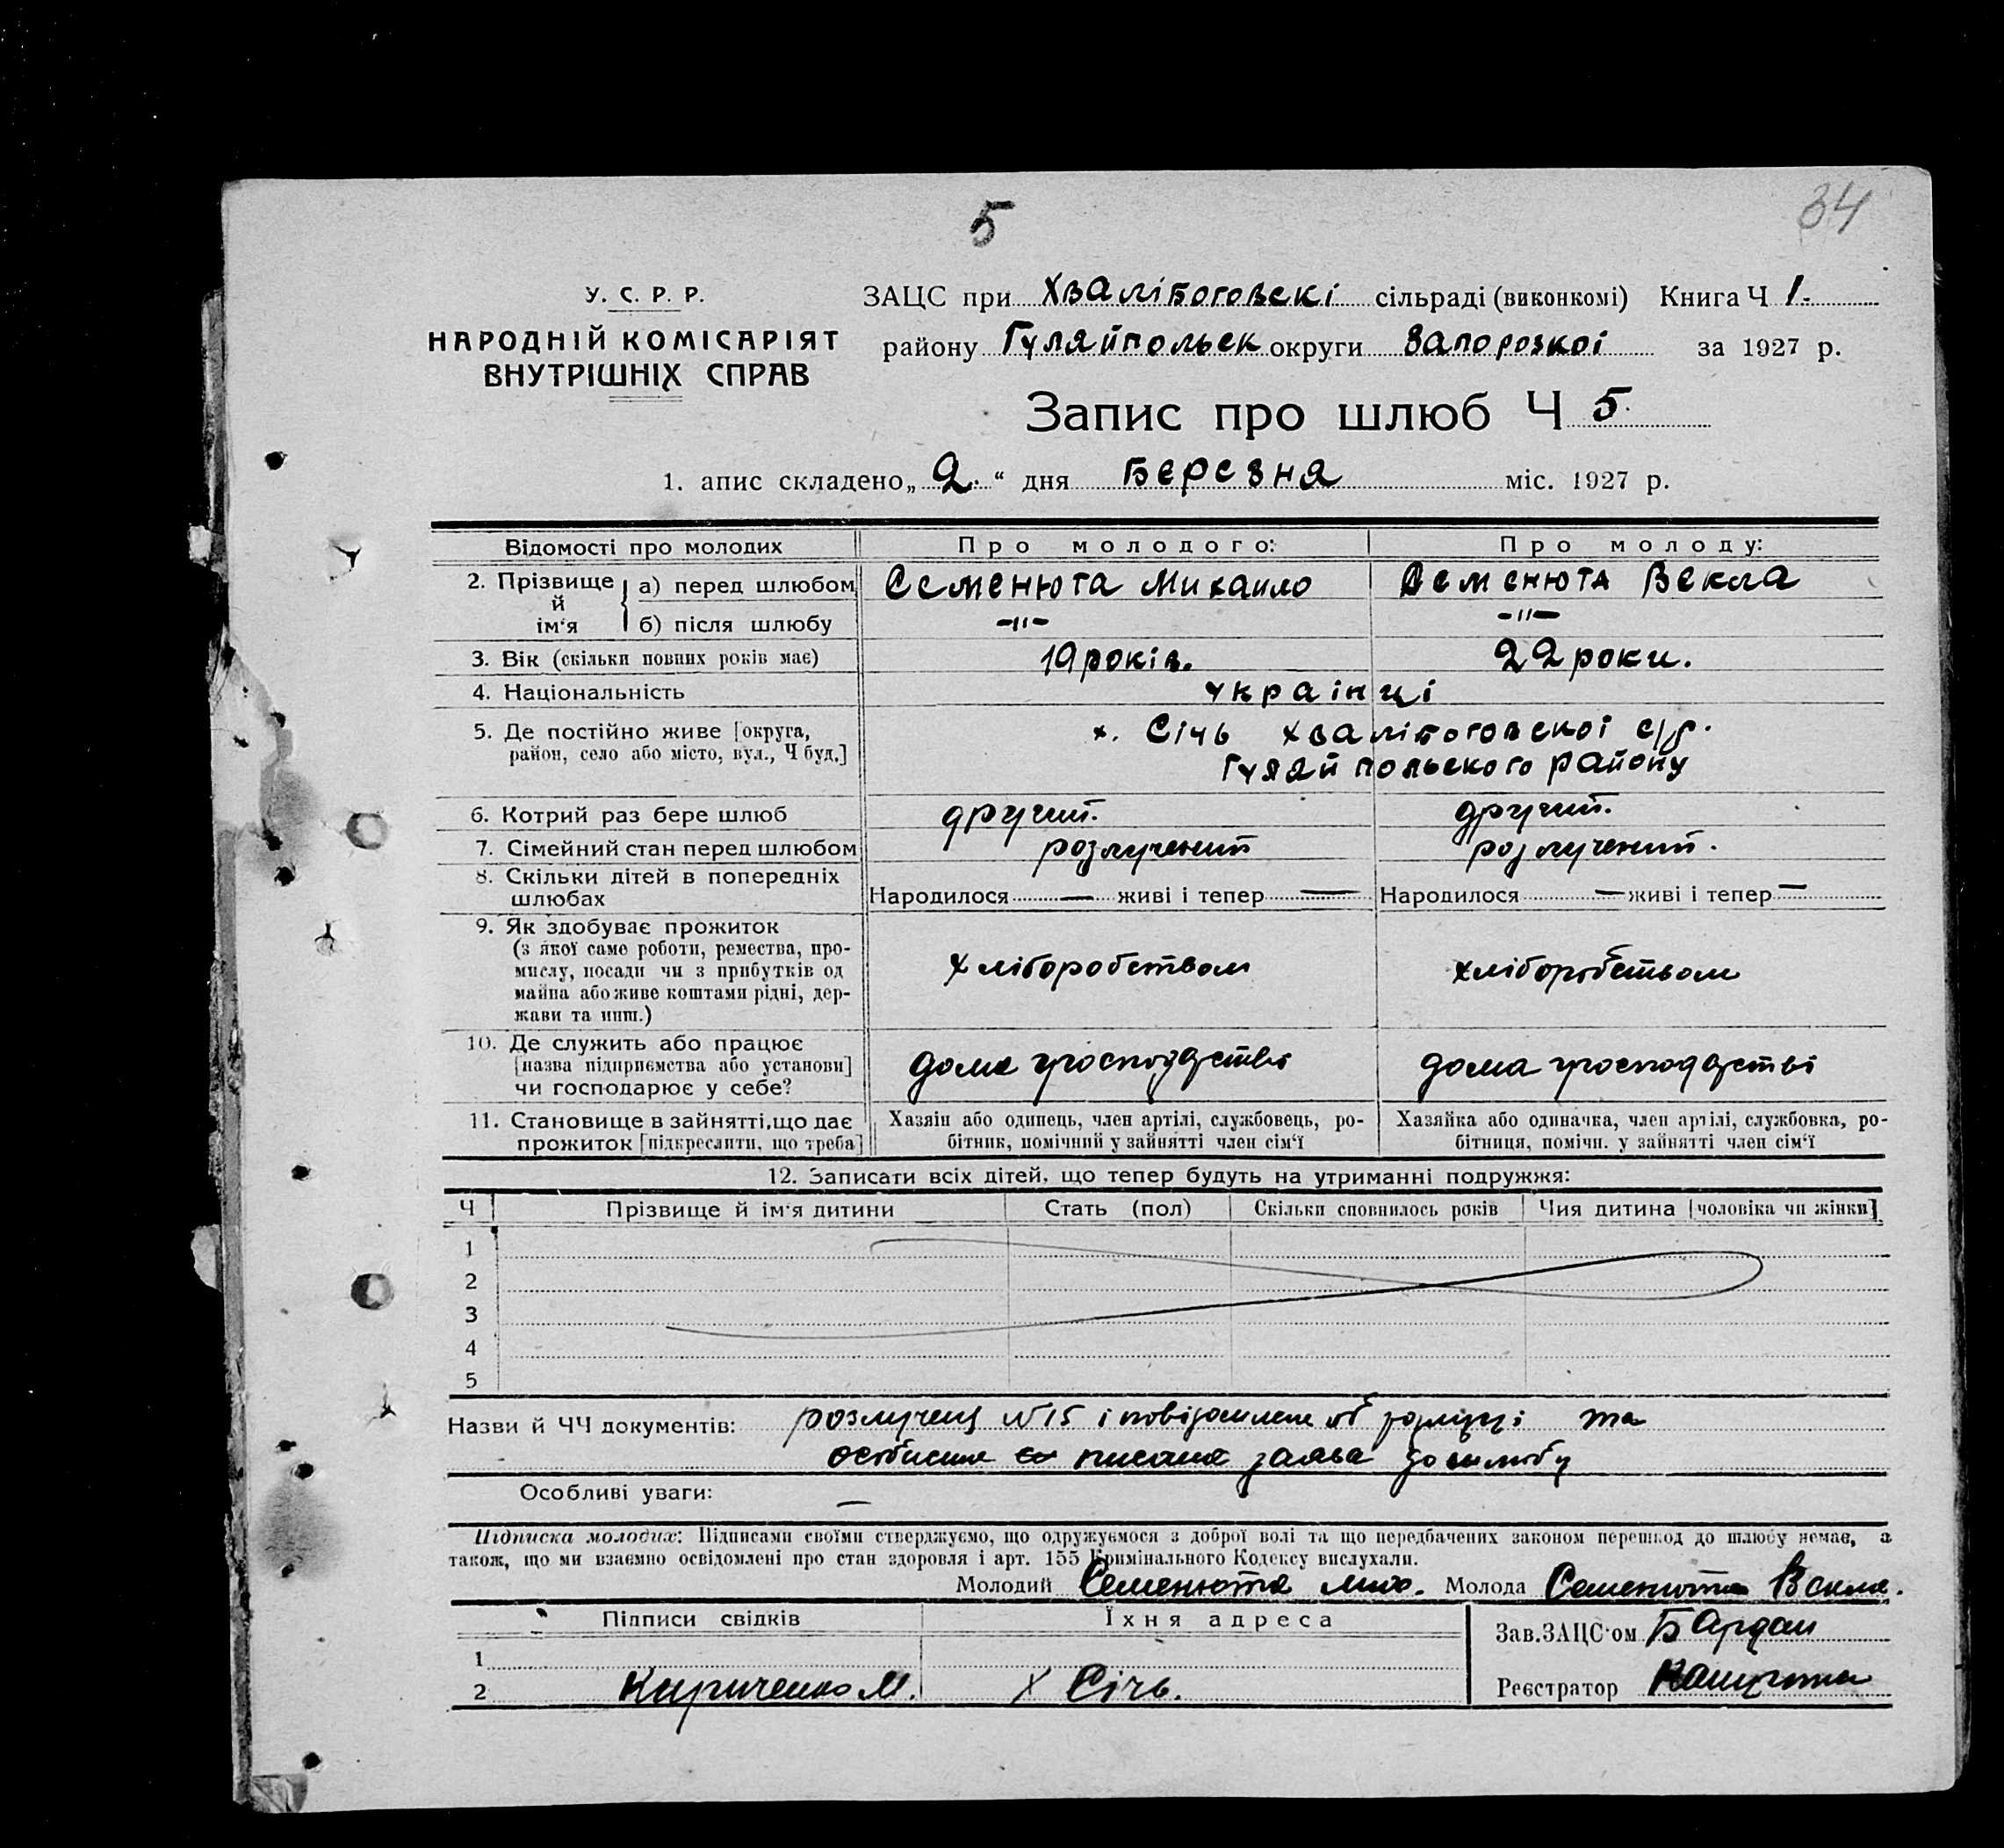 5
34
У. С. Р. Р.
НАРОДНІЙ КОМІСАРІЯТ
ВНУТРІШНІХ СПРАВ
ЗАЦС при Хвалібоговскі сільраді (виконкомі) Книга Ч 1.
району Гуляйпольск округи Запорозкоі за 1927 р.
Запис про шлюб Ч 5.
1. апис складено „ 2. “ дня Березня міс. 1927 р.
Відомості про молодих Про молодого: Про молоду:
2. Прізвище й ім‘я а) перед шлюбом Семенюта Михаило Семенюта Векла
б) після шлюбу -"- -"-
3. Вік (скільки повних років має) 19 років. 22 роки.
4. Національність українці
5. Де постійно живе [округа, х. Січь Хвалібоговскоі с/р.
район, село або місто, вул., Ч буд.] Гуляйпольского району
6. Котрий раз бере шлюб другий. другий.
7. Сімейний стан перед шлюбом розлучений розлучений.
8. Скільки дітей в попередніх
шлюбах Народилося — живі і тепер — Народилося — живі і тепер —
9. Як здобуває прожиток
(з якої саме роботи, ремества, про-
мислу, посади чи з прибутків од хліборобством хліборобством
майна або живе коштами рідні, дер-
жави та инш.)
10. Де служить або працює
[назва підприємства або установи] дома госполдстві дома господарстві
чи господарює у себе?
11. Становище в зайнятті, що дає Хазяін або одинець, член артілі, службовець, ро- Хазяйка або одиначка, член артілі, службовка, ро-
прожиток [підкреслити, що треба] бітник, помічний у зайнятті член сім‘ї бітниця, помічн. у зайнятті член сім‘ї
12. Записати всіх дітей, що тепер будуть на утриманні подружжя:
Ч Прізвище й ім‘я дитини Стать (пол) Скільки сповнилось років Чия дитина [чоловіка чи жінки]
1
2
3
4
5
Назви й ЧЧ документів: N 15 і та
писана заява до шлюбу
Особливі уваги: —
Підписка молодих: Підписами своїми стверджуємо, що одружуємося з доброї волі та що передбачених законом перешкод до шлюбу немає, а
також, що ми взаємно освідомлені про стан здоровля і арт. 155 Кримінального Кодексу вислухали.
Молодий Семенюта Мих. Молода Семенюта Векла.
Підписи свідків Їхня адреса Зав. ЗАЦС‘ом Бардаш
1
2 Кириченко М. х Січь. Реєстратор